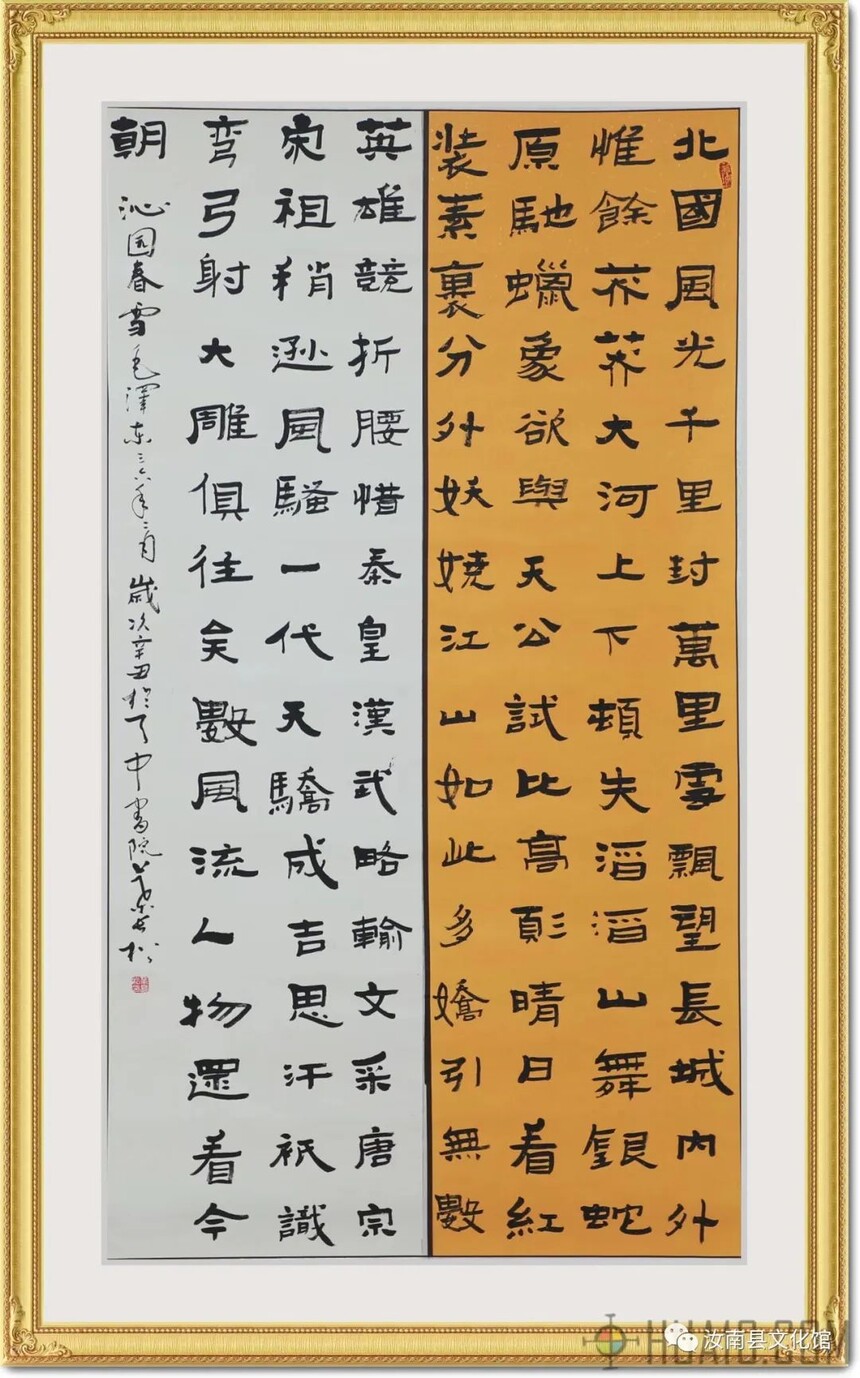 北國風光千里封萬里雪飄望長城內外
惟餘莽莽大河上下頓失滔滔山舞銀蛇
原馳蠟象欲與天公試比高須晴日看紅
装素裹分外妖嬈江山如此多嬌引無數
英雄競折腰惜秦皇漢武略輸文采唐宗
宋祖稍遜風騷一代天驕成吉思汗祇識
弯弓射大雕俱往矣數風流人物還看今
朝
沁园春雪毛澤东三六年二月歲次辛丑於天中書院
汝南县文化馆